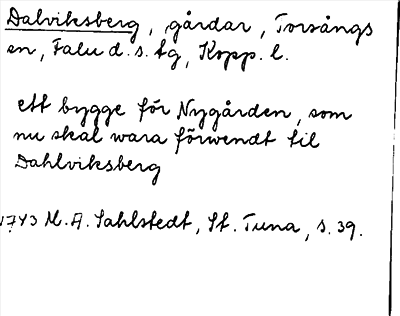 Dalviksberg, gårdar, Torsångs
sn, Falu d.s. tg, Kopp. l.
ett bygge för Nygården, som
nu skal wara förwendt til
Dahlviksberg
1743 M. A. Sahlstedt, St. Tuna, s. 39.